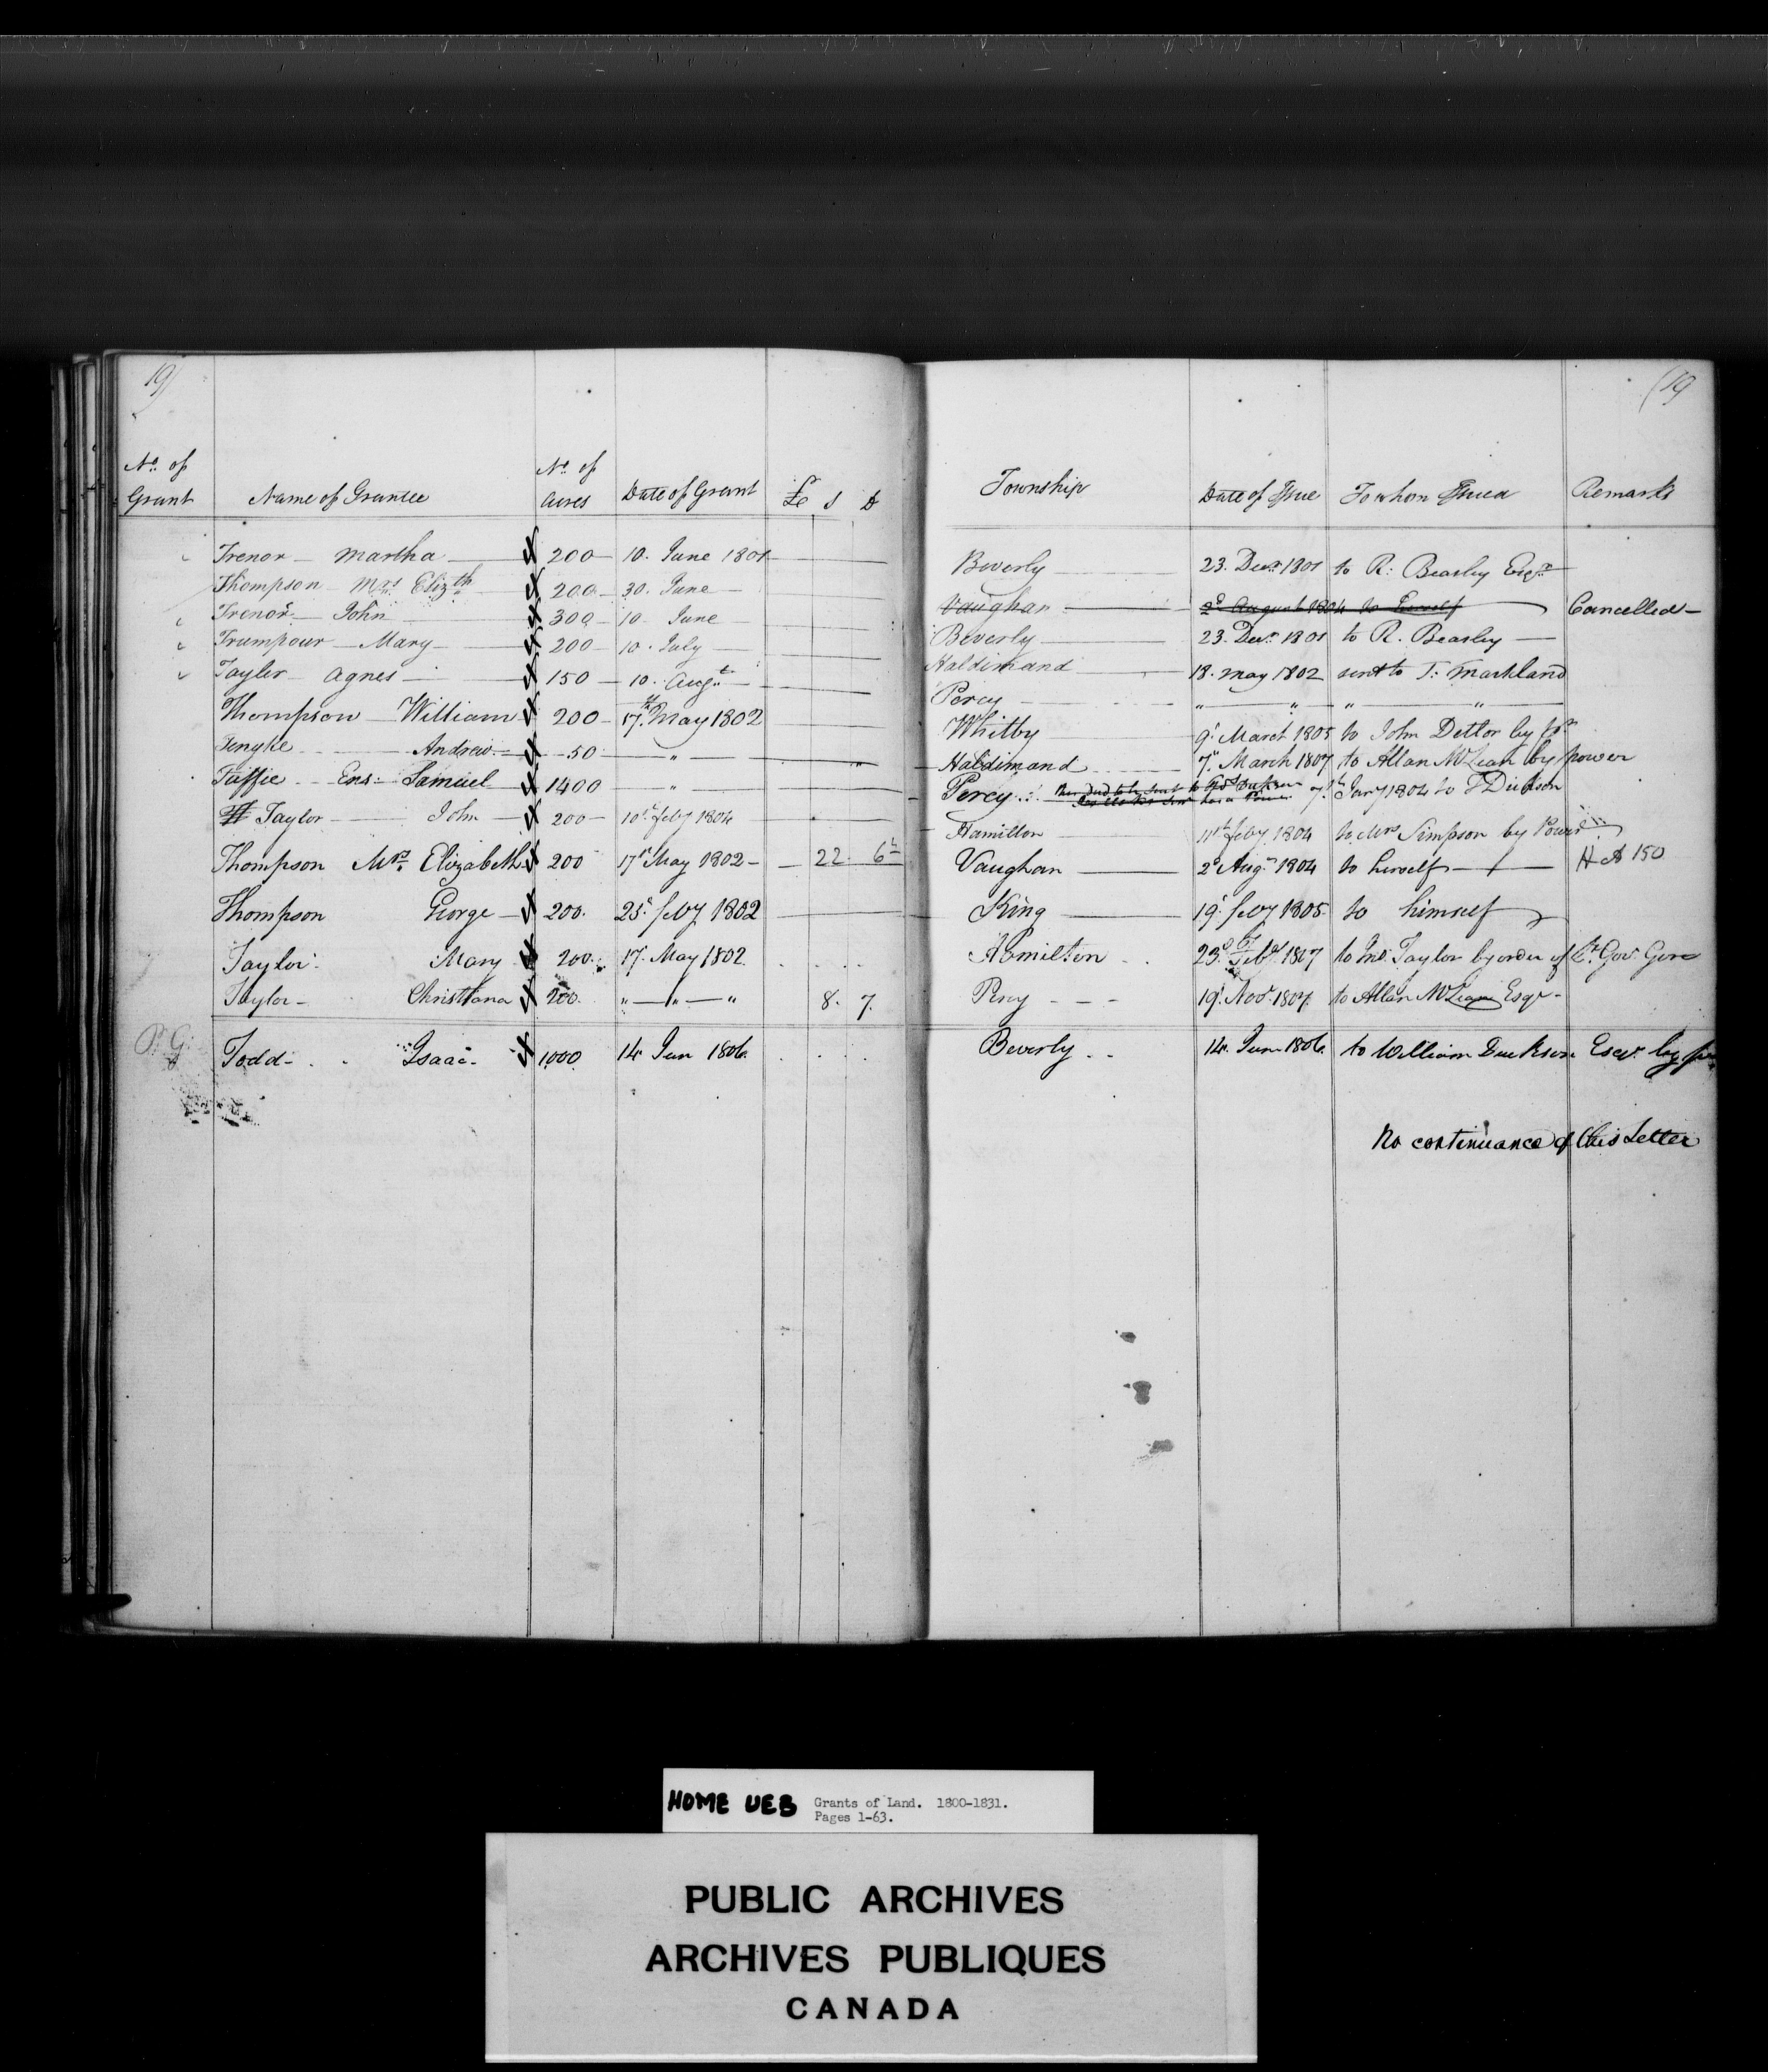 19)
(19
No. of Grant Name of Grantee No. of Acres Date of Grant £ S D Township Date of Issue To whom Issued Remarks
Trenor — Martha — 200 — 10. June 1801 Beverly — 23. Decr. 1801 to R: Beasley Esqr.
Thompson Mrs Elizth — 200 — 30. June — Vaughan — 2d August 1804 to herself Cancelled —
Trenor — John — 300 — 10 June Beverly — 23. Decr. 1801 to R. Beasley —
Trumpour — Mary — 200 — 10. July — Haldimand — 18. May 1802 sent to T. Markland
Tayler — Agnes — 150 — 10. Augt. — Percy — " — " — " — "
Thompson — William — 200 — 17th. May 1802 Whitby — 9th March 1805 to John Detlor by
Tenyke — Andrew — 50 — " — Haldimand — 7th March 1807 to Allan McLean by power
Taffie — Ens: Samuel — 1400 " Percy 7th Jany 1804 to T Dickson
Taylor — John — 200 — 10th feby 1804 Hamilton — 11th feby 1804 to Mrs Simpson by Power
Thompson Mrs. Elizabeth 200 17th May 1802 — 22. 6 Vaughan — 2d Augt 1804 to herself — H A 150
Thompson George — 200. 25th feby 1802 King — 19th feby 1805. to himself
Taylor. Mary 200. 17th May 1802. Hamilton . . 23d Feby 1807 to Jno. Taylor by order of Lt. Gov. Gore
Taylor — Christiana 200. " — " — " 8. 7. Percy — — — 19th Novr. 1807. to Allan McLean Esqr —
P. G. Todd — . . Isaac. 1000 14. Jan 1806. Beverly . . 14. Jan 1806. to William Dickson Esqr. by
No continuance of this Letter
HOME UEB Grants of Land. 1800-1831.
Pages 1-63.
PUBLIC ARCHIVES
ARCHIVES PUBLIQUES
CANADA